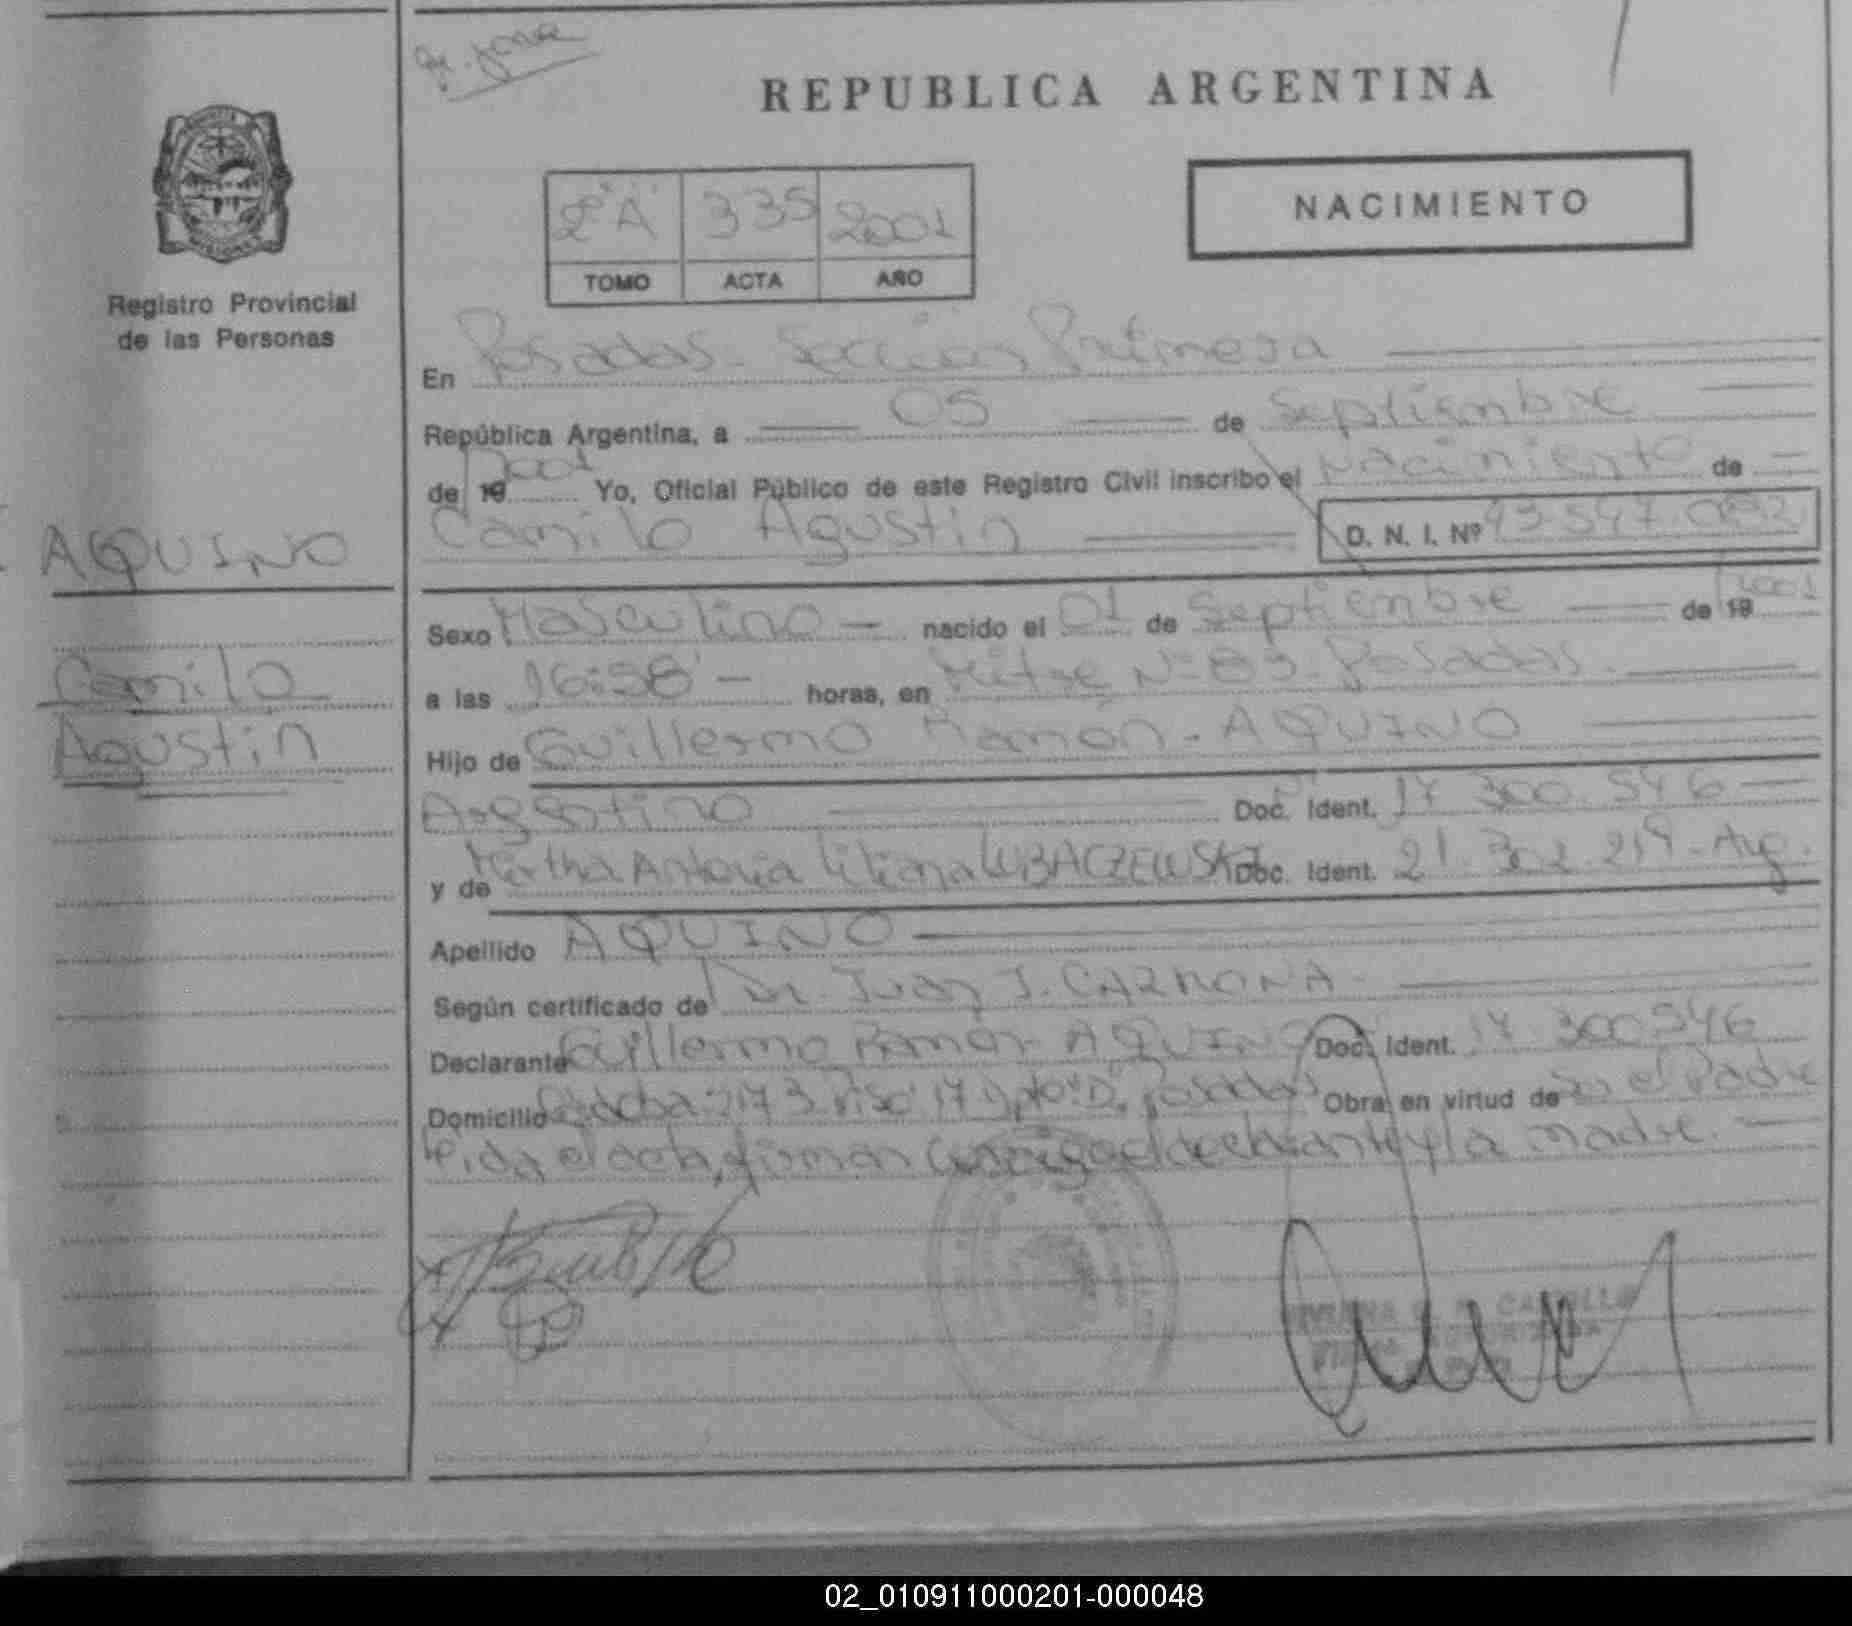 REPUBLICA ARGENTINA
NACIMIENTO
2º A 335 2001
TOMO ACTA AÑO
Registro Provincial
de las Personas
En Posadas - Sección Primera
República Argentina, a 05 de Septiembre
de 19 2001 Yo, Oficial Público de este Registro Civil inscribo el Nacimiento de
Camilo Agustin D. N. I. Nº 43.547.082
AQUINO
Camilo
Agustin
Sexo Masculino - nacido el 01 de Septiembre de 19 2001
a las 16:58 - horas, en Mitre Nº 83 - Posadas
Hijo de Guillermo Ramón - AQUINO
Argentino Doc. Ident. 17.300.546
y de Mirtha Antonia Liliana LUBACZEWSKI Doc. Ident. 21.302.219 - Arg.
Apellido AQUINO
Según certificado de Dr. Juan J. CARMONA
Declarante Guillermo Ramón AQUINO Doc. Ident. 17.300.546
Domicilio 173 Piso 17 Dpto. D. Posadas Obra en virtud de Ser el Padre
Leida el acta, firman conmigo el declarante y la madre.
02_010911000201-000048